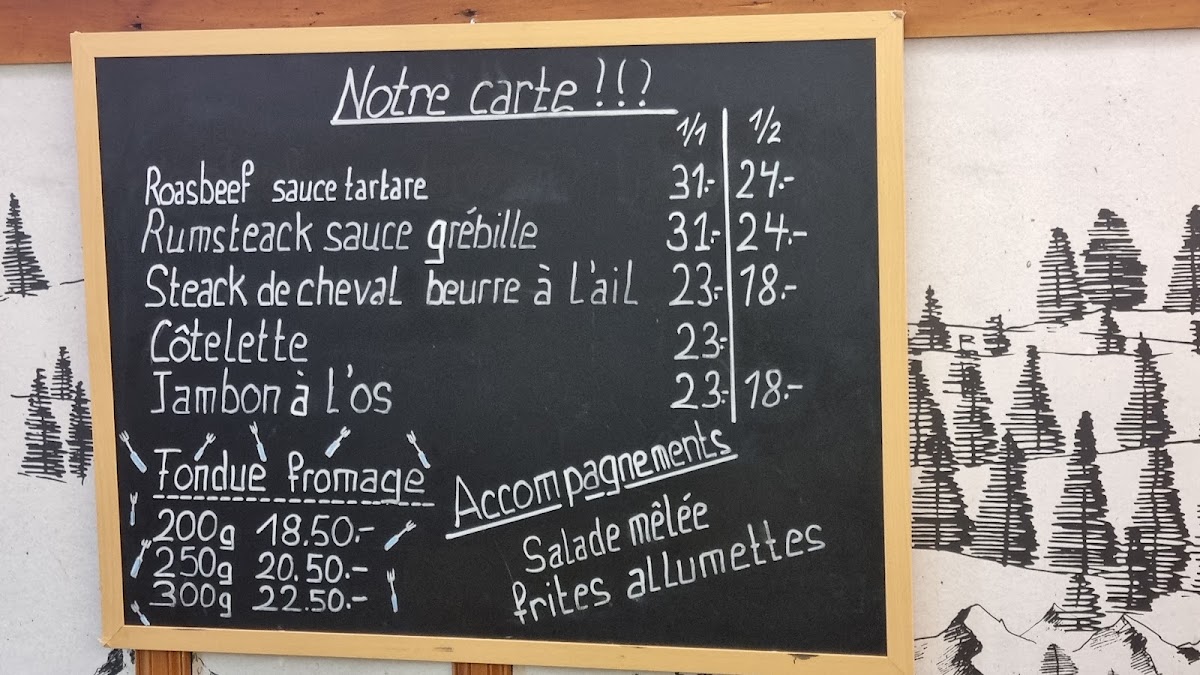 Notre carte !!?
1/1 1/2
Roasbeef sauce tartare 31.- 24.-
Rumsteack sauce grébille 31.- 24.-
Steack de cheval beurre à l'ail 23.- 18.-
Côtelette 23.-
Jambon à l'os 23.- 18.-
Fondue fromage
200g 18.50.-
250g 20.50.-
300g 22.50.-
Accompagnements
Salade mêlée
frites allumettes